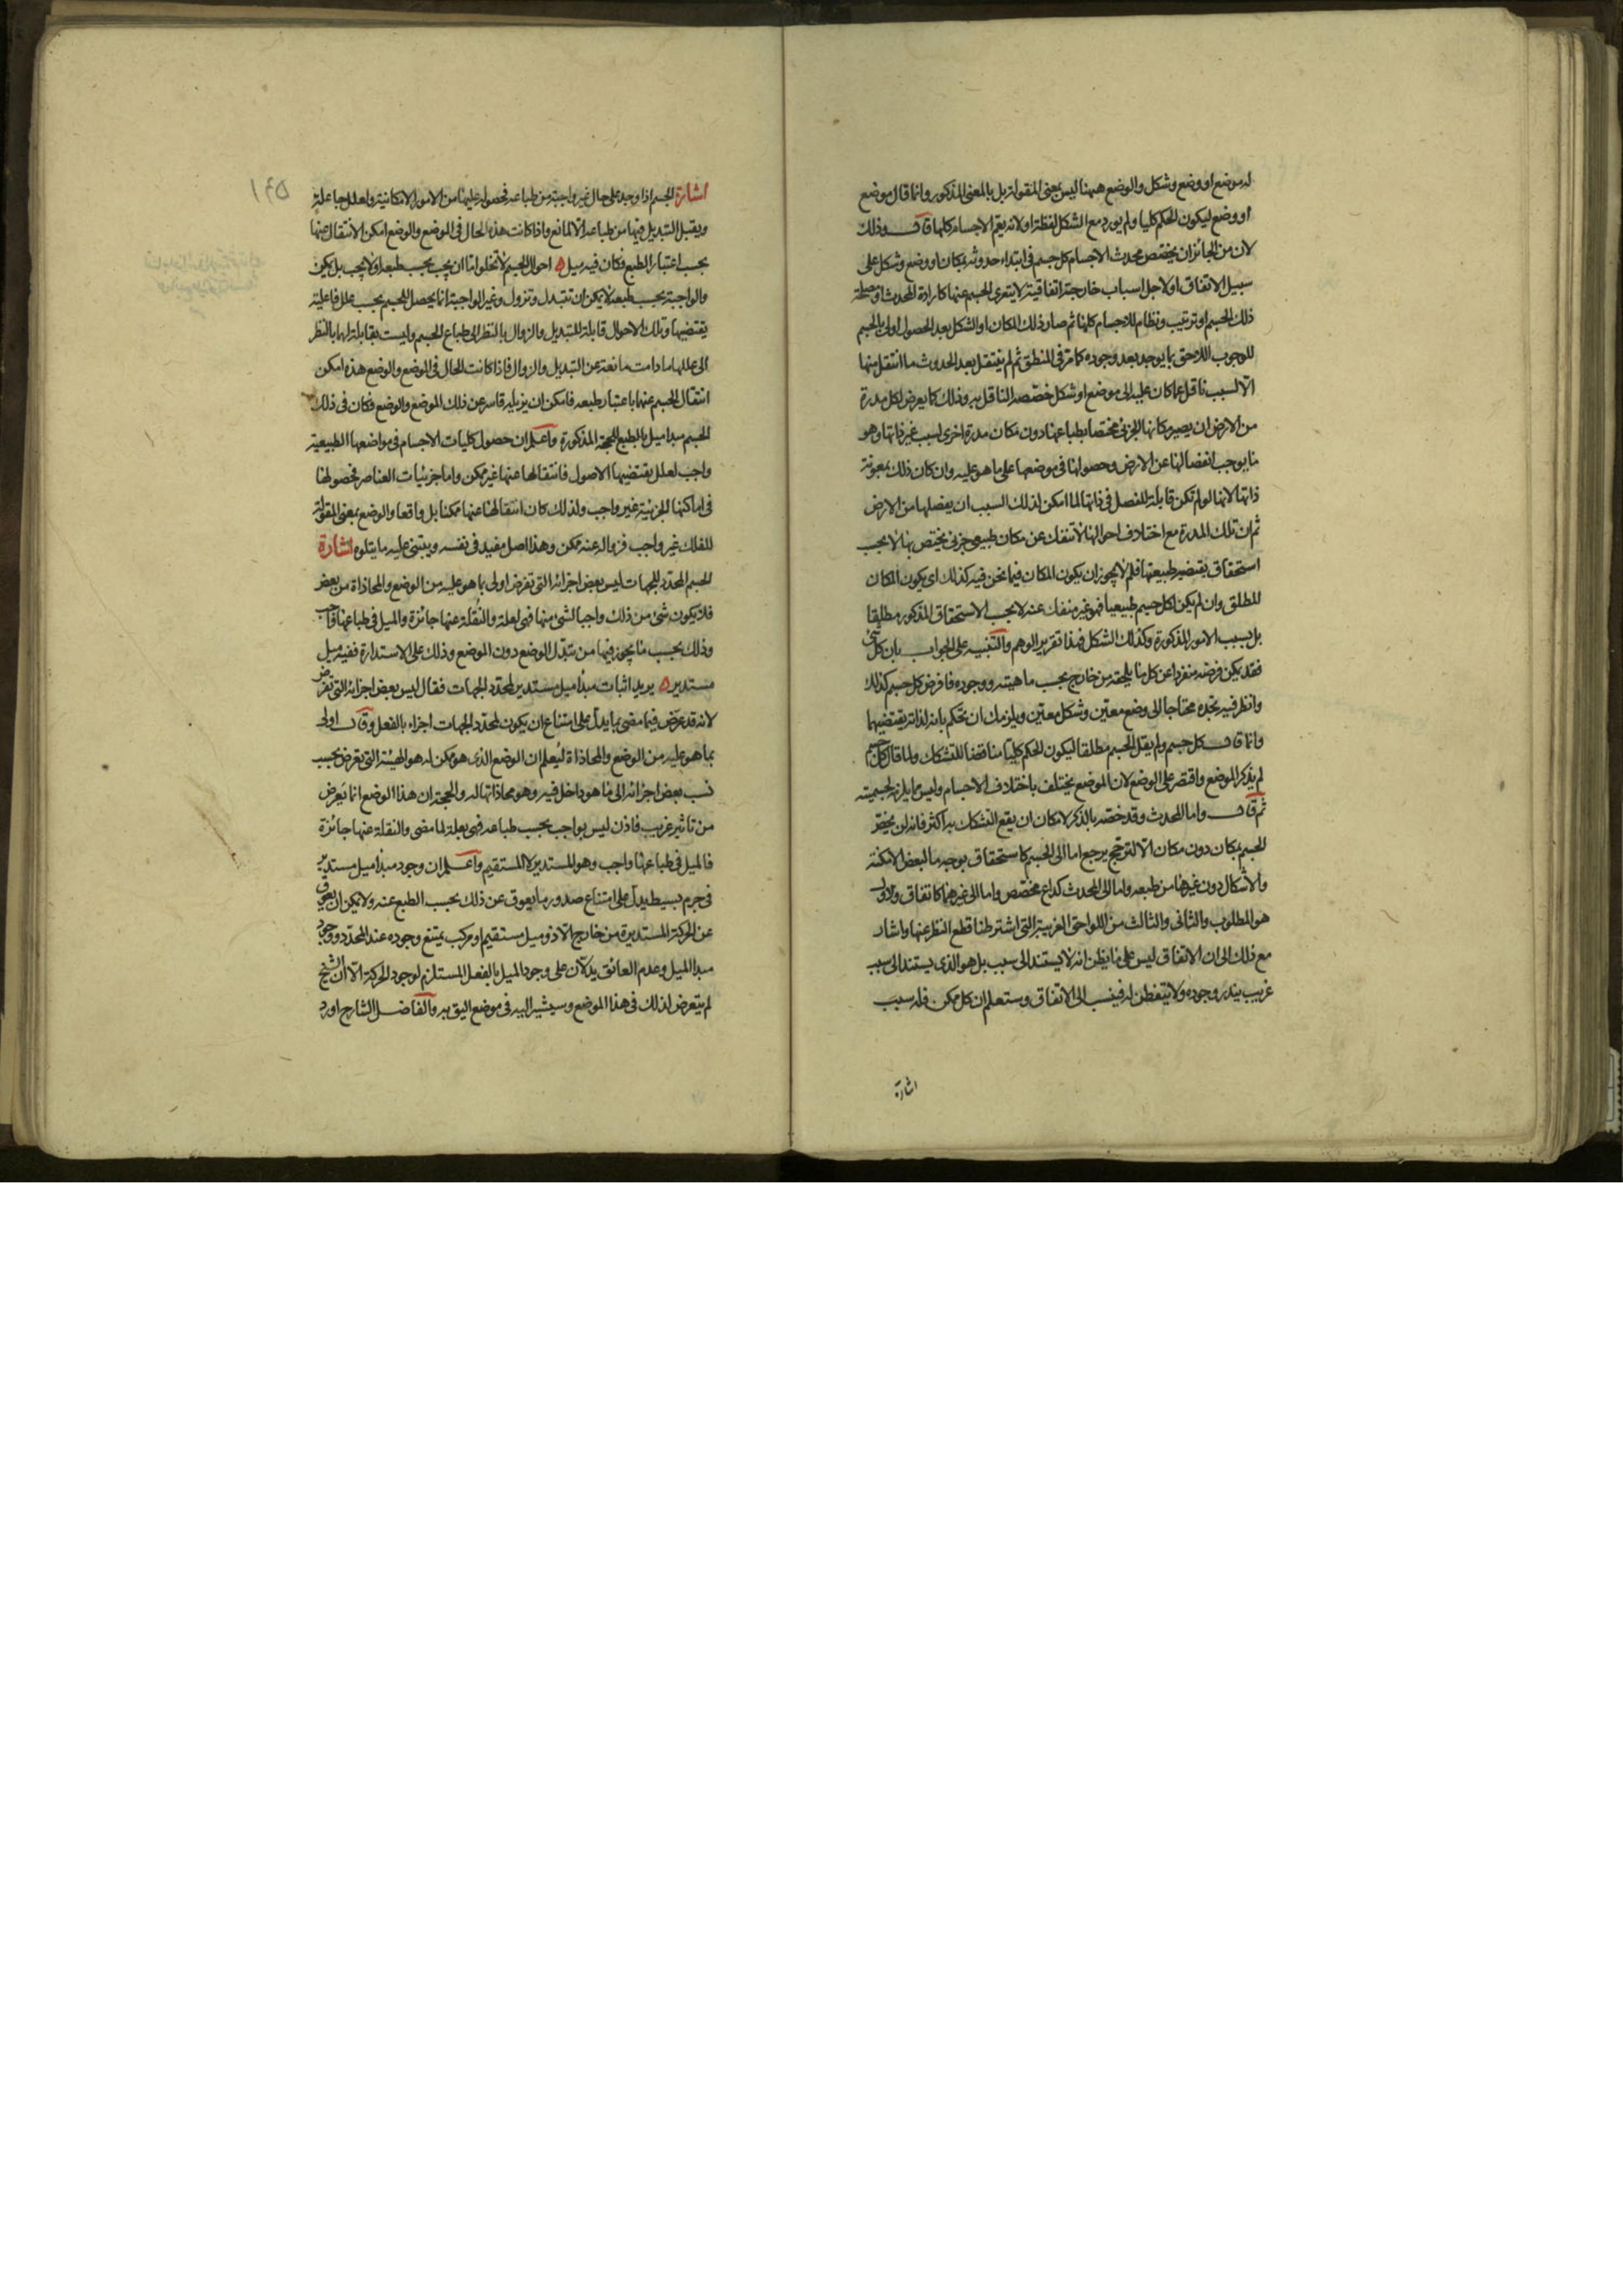 له موضع او وضع وشكل والوضع ههنا ليس بمعنى المقولة بل بالمعنى المذكور وانما قال موضع
او وضع ليكون الحكم كليا ولم يورد مع الشكل لفظة او لانه يعم الاجسام كلها قال وذلك
لان من الجائز ان يخصص محدث الاجسام كل جسم في ابتداء حدوثه بمكان او وضع وشكل على
سبيل الاتفاق او لاجل اسباب خارجة اتفاقية لا يتعرى الجسم عنها كارادة المحدث او مصلحة
ذلك الجسم او ترتيب ونظام للاجسام كلها ثم صار ذلك المكان او الشكل بعد الحصول اولى بالجسم
للوجوب اللاحق بما يوجد بعد وجوده كما مر في المنطق ثم لم ينتقل بعد الحدوث ما انتقل منها
الا لسبب ناقل عما كان عليه الى موضع او شكل خصصه الناقل به وذلك كما يعرض لكل مدرة
من الارض ان يصير مكانها الجزئي مختصا بطباعها دون مكان مدرة اخرى لسبب غير ذاتها وهو
ما يوجب انفصالها عن الارض وحصولها في موضعها على ما هو عليه وان كان ذلك بمعونة
ذاتها لانها لو لم تكن قابلة للفصل في ذاتها لما امكن لذلك السبب ان يفصلها من الارض
ثم ان تلك المدرة مع اختلاف احوالها لا تنفك عن مكان طبيعي جزئي يختص بها لا بحسب
استحقاق يقتضيه طبيعتها فلم لا يجوز ان يكون المكان فيما نحن فيه كذلك اى يكون المكان
المطلق وان لم يكن لكل جسم طبيعيا فهو غير منفك عنه لا بحسب الاستحقاق المذكور مطلقا
بل بسبب الامور المذكورة وكذلك الشكل فهذا تقرير الوهم والتنبيه على الجواب بان كل شئ
فقد يمكن فرضه منفردا عن كل ما يلحقه من خارج بحسب ماهيته ووجوده فافرض كل جسم كذلك
وانظر فيه تجده محتاجا الى وضع معين وشكل معين ويلزمك ان تحكم بانه لذاته يقتضيهما
وانما قال كل جسم ولم يقل الجسم مطلقا ليكون الحكم كليا مناقضا للتشكك ولما قال كل جسم
لم يذكر الموضع واقتصر على الوضع لان الموضع يختلف باختلاف الاجسام وليس مما يلزم لجسميته
ثم قال واما المحدث وقد خصه بالذكر لامكان ان يقع التشكك به اكثر فانه لن يخص
الجسم بمكان دون مكان الا لترجح يرجع اما الى الجسم كاستحقاق بوجه ما لبعض الامكنة
والاشكال دون غيرها من طبعه واما الى المحدث كداع مخصص واما الى غيرهما كاتفاق والاول
هو المطلوب والثانى والثالث من اللواحق الغريبة التي اشترطنا قطع النظر عنها واشار
مع ذلك الى ان الاتفاق ليس على ما يظن انه لا يستند الى سبب بل هو الذى يستند الى سبب
غريب يندر وجوده ولا يتفطن له فينسب الى الاتفاق وستعلم ان كل ممكن فله سبب
اشارة
١٩٥
اشارة الجسم اذا وجد على حال غير واجبة من طباعه فحصوله عليها من الامور الامكانية ولعلل جاعلة
ويقبل التبديل فيها من طباعه الا لمانع واذا كانت هذه الحال في الموضع والوضع امكن الانتقال عنها
بحسب اعتبار الطبع فكان فيه ميل احوال الجسم لا تخلوا اما ان يجب بحسب طبعه او لا يجب بل يمكن
والواجبة بحسب طبعه لا يمكن ان تتبدل وتزول وغير الواجبة انما يحصل للجسم بحسب علل فاعلية
يقتضيها وتلك الاحوال قابلة للتبديل والزوال بالنظر الى طباع الجسم وليست بقابلة لها بالنظر
الى عللها ما دامت مانعة عن التبديل والزوال فاذا كانت الحال في الموضع والوضع هذه امكن
انتقال الجسم عنها باعتبار طبعه فامكن ان يزيله قاسر عن ذلك الموضع والوضع فكان في ذلك
الجسم مبدا ميل بالطبع للحجة المذكورة واعلم ان حصول كليات الاجسام في مواضعها الطبيعية
واجب لعلل يقتضيها الاصول فانتقالها عنها غير ممكن واما جزئيات العناصر فحصولها
في اماكنها الجزئية غير واجب ولذلك كان انتقالها عنها ممكنا بل واقعا والوضع بمعنى المقولة
للفلك غير واجب فزواله عنه ممكن وهذا اصل مفيد في نفسه ويبتنى عليه ما يتلوه اشارة
الجسم المحدد للجهات ليس بعض اجزائه التي تفرض اولى بما هو عليه من الوضع والمحاذاة من بعض
فلا يكون شئ من ذلك واجبا لشئ منها فهى لعلة والنقلة عنها جائزة والميل في طباعها واجب
وذلك بحسب ما يجوز فيها من تبدل الوضع دون الموضع وذلك على الاستدارة ففيه ميل
مستدير يريد اثبات مبدأ ميل مستدير لمحدد الجهات فقال ليس بعض اجزائه التي تفرض
لانه قد عرض فيما مضى بما يدل على امتناع ان يكون لمحدد الجهات اجزاء بالفعل وقال اولى
بما هو عليه من الوضع والمحاذاة ليعلم ان الوضع الذى هو ممكن له هو الهيئة التي تعرض بحسب
نسب بعض اجزائه الى ما هو داخل فيه وهو محاذاتها له والحجة ان هذا الوضع انما يعرض
من تاثير غريب فاذن ليس بواجب بحسب طباعه فهى بعلة لما مضى والنقلة عنها جائزة
فالميل في طباعها واجب وهو المستدير لا المستقيم واعلم ان وجود مبدا ميل مستدير
في جرم بسيط يدل على امتناع صدور ما يعوق عن ذلك بحسب الطبع عنه ولا يمكن ان يعوق
عن الحركة المستديرة من خارج الا ذو ميل مستقيم او مركب يمتنع وجوده عند المحدد ووجود
مبدا الميل وعدم العائق يدلان على وجود الميل بالفعل المستلزم لوجود الحركة الا ان الشيخ
لم يتعرض لذلك في هذا الموضع وسيشير اليه في موضع اليق به والفاضل الشارح اورد